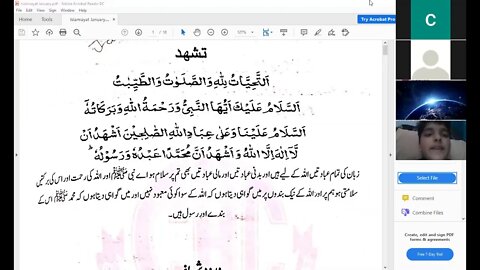 islamiayat January.pdf - Adobe Acrobat Reader DC
Home Tools
islamiayat January...
1 / 18
Try Acrobat Pro
تشهد
اَلتَّحِيَّاتُ لِلّٰهِ وَالصَّلَوٰتُ وَالطَّيِّبٰتُ
اَلسَّلَامُ عَلَيْكَ اَيُّهَا النَّبِيُّ وَرَحْمَةُ اللّٰهِ وَبَرَكَاتُهٗ
اَلسَّلَامُ عَلَيْنَا وَعَلٰى عِبَادِ اللّٰهِ الصّٰلِحِيْنَ اَشْهَدُ اَنْ
لَّآ اِلٰهَ اِلَّا اللّٰهُ وَ اَشْهَدُ اَنَّ مُحَمَّدًا عَبْدُهٗ وَرَسُوْلُهٗ ؕ
زبان کی تمام عبادتیں اللہ کے لیے ہیں اور بدنی عبادتیں اور مالی عبادتیں بھی تم پر سلام ہو اے نبی ﷺ اور اللہ کی رحمت اور اس کی برکتیں
سلامتی ہو ہم پر اور اللہ کے نیک بندوں پر میں گواہی دیتا ہوں کہ اللہ کے سوا کوئی معبود نہیں اور میں گواہی دیتا ہوں کہ محمد ﷺ اس کے
بندے اور رسول ہیں۔
C
Select File
Convert Files
Combine Files
Create, edit and sign PDF
forms & agreements
Free 7-Day Trial